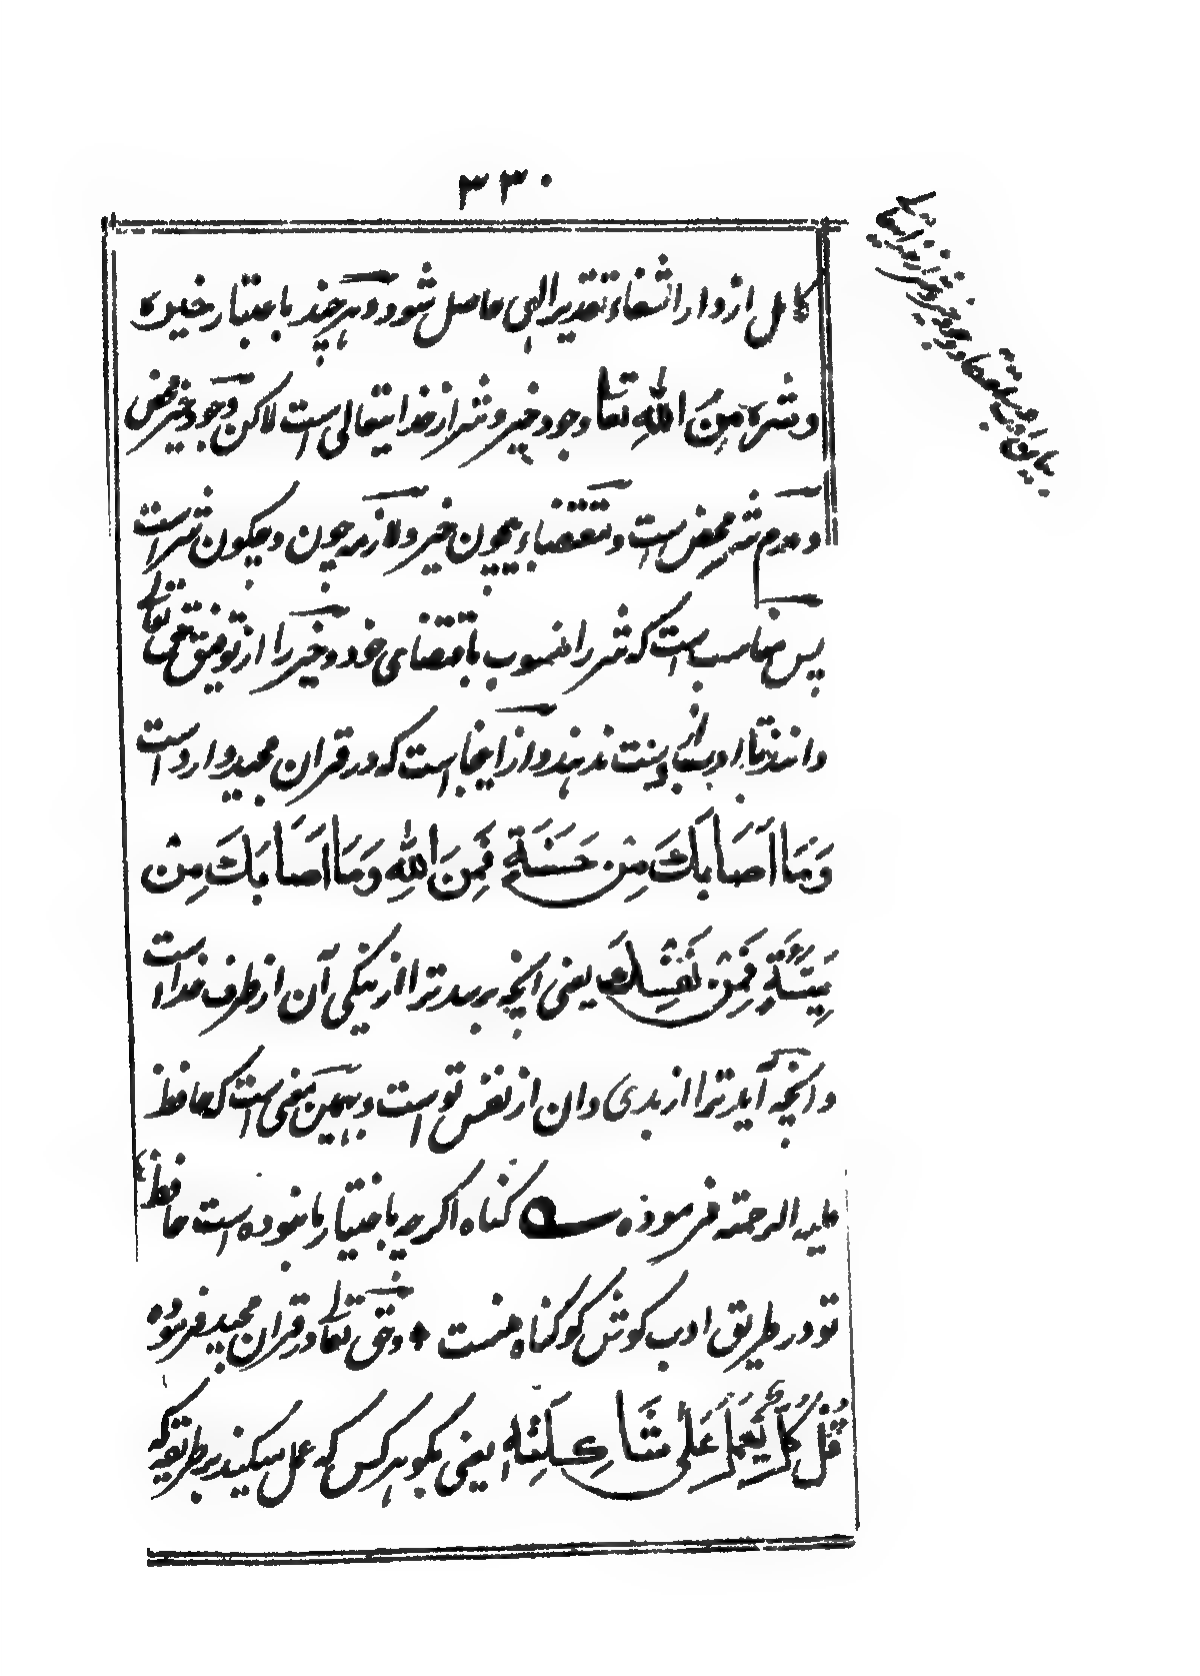 ۳۳۰
کامل از دار الشفاء تقدیر الهی حاصل شود و هرچند باعتبار خیره
وشره مِنَ اللهِ تعا وجود خیر و شر از خدایتعالی است لاکن وجود خیر محض
و عدم شر محض است و مقتضاء بیچون خیر و لازمه چون و چگون شر است
پس مناسب است که شر را منسوب باقتضای خود و خیر را از توفیق حق تعالی
دانند تا ادب از دست ندهند و از اینجا است که در قران مجید وارد است
وَمَا اَصَابَكَ مِن حَسَنَةٍ فَمِنَ اللهِ وَمَا اَصَابَكَ مِنْ
سَيِّئَةٍ فَمِنْ نَفْسِكَ یعنی انچه برسد ترا از نیکی آن از طرف خدا است
و انچه آید ترا از بدی و ان از نفس تو است و بهمین معنی است که حافظ
علیه الرحمته فرموده ه گناه اگرچه باختیار ما نبوده است حافظ
تو در طریق ادب کوش گو گناه منست و حق تعا در قران مجید فرموده
قُلْ كُلٌّ يَعْمَلُ عَلَى شَاكِلَتِهِ یعنی بگو هرکس که عمل میکند بر طریقه که